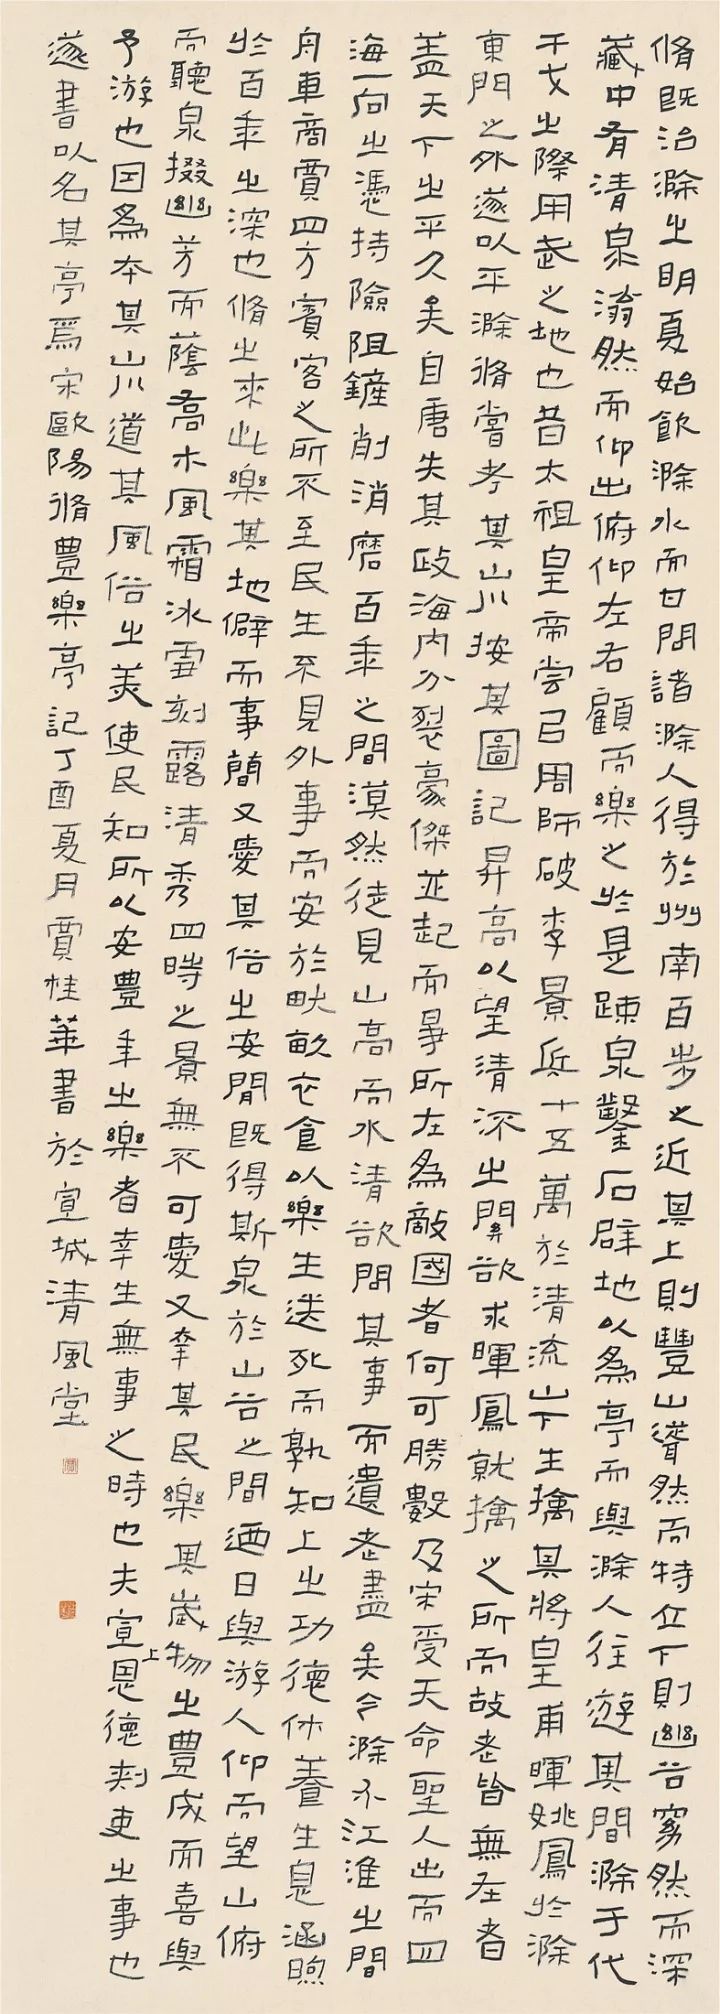 脩既治滁之明夏始飲滁水而甘問諸滁人得於州南百步之近其上則豐山聳然而特立下則幽谷窈然而深
藏中有清泉滃然而仰出俯仰左右顧而樂之於是疏泉鑿石辟地以為亭而與滁人往遊其間滁于代
干戈之際用武之地也昔太祖皇帝嘗以周師破李景兵十五萬於清流山下生擒其將皇甫暉姚鳳於滁
東門之外遂以平滁脩嘗考其山川按其圖記昇高以望清流之關欲求暉鳳就擒之所而故老皆無在者
蓋天下之平久矣自唐失其政海內分裂豪傑並起而爭所在為敵國者何可勝數及宋受天命聖人出而四
海一向之憑持險阻鏟削消磨百年之間漠然徒見山高而水清欲問其事而遺老盡矣今滁介江淮之間
舟車商賈四方賓客之所不至民生不見外事而安於畎畝衣食以樂生送死而孰知上之功德休養生息涵煦
於百年之深也脩之來此樂其地僻而事簡又愛其俗之安閒既得斯泉於山谷之間迺日與游人仰而望山俯
而聽泉掇幽芳而蔭喬木風霜冰雪刻露清秀四時之景無不可愛又幸其民樂其歲物之豐成而喜與
予游也因為本其山川道其風俗之美使民知所以安豐年之樂者幸生無事之時也夫宣上恩德刺史之事也
遂書以名其亭焉宋歐陽脩豐樂亭記丁酉夏月賈桂華書於宣城清風堂